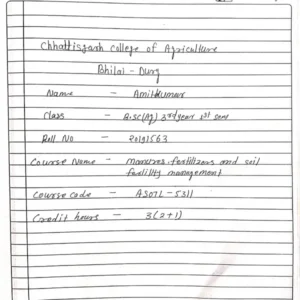 Chhattisgarh College of Agriculture
Bhilai - Durg
Name - Amitkumar
Class - B.sc(Ag) 3rd year 1st sem
Roll No - 20191563
Course Name - manures, fertilizers and soil
fertility management
Course code - ASOIL - 5311
Credit hours - 3(2+1)